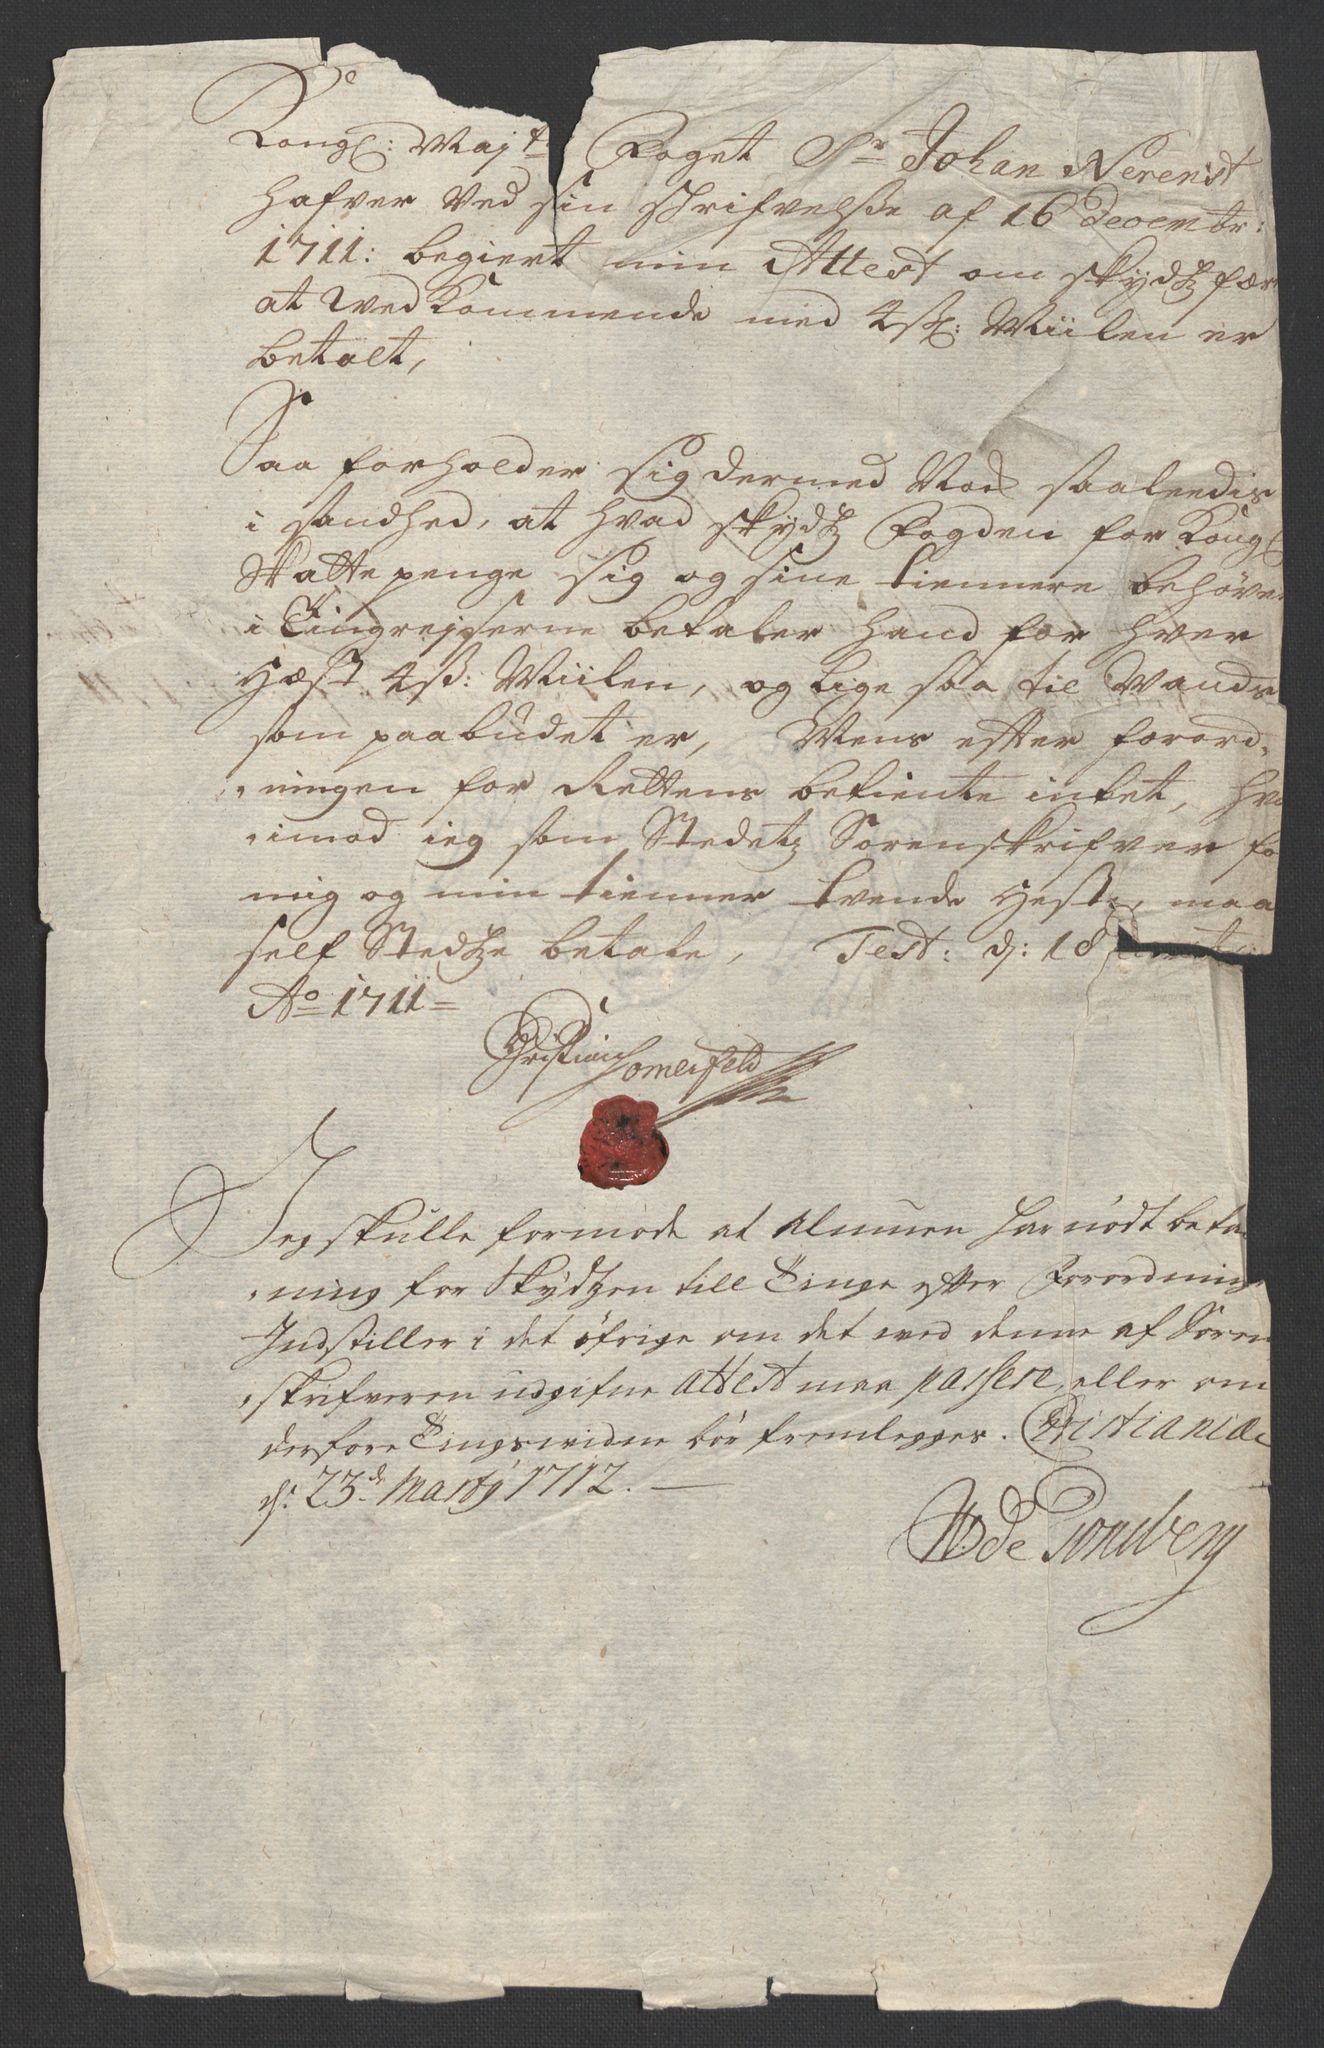 Kongl: Maj.ts Foget Sr Johan Nerenst
hafver Ved sin schrifvelsse af 16 Decembr:
1711: begiert min Attest om skydtz fær
at Vedkommende med 4sk: Miilen er
betalt,
Saa forholder sig dermed saaleedis
i sandhed, at hvad skydtz Fogden for Kongl
Skatte penge sig og sine tiennere behöve
i Tingrejserne betaler hand for hver
Hæst 4ß: Miilen, og lige saa til Wands
som paabudet er, Mens efter forord-
ningen for Rettens betiente intet, hvo
imod ieg som Stedetz Sorenskrifver fo
mig og min tienner tvende Heste, maa
self Stedtze betale, Test: d: 18
Ao 1711=
Christian Somerfeld
Jeg skulle formode at Almuen har nödt beta
ning for Skydtzen till Tinge efter Forordning
Indstiller i det öfrige om det med denne af Soren
skrifveren udgifne attest maa passere, eller om
derfore Tingsvidne bör fremlegges. Christianiæ
d: 23de Martij 1712.
de Tonsberg